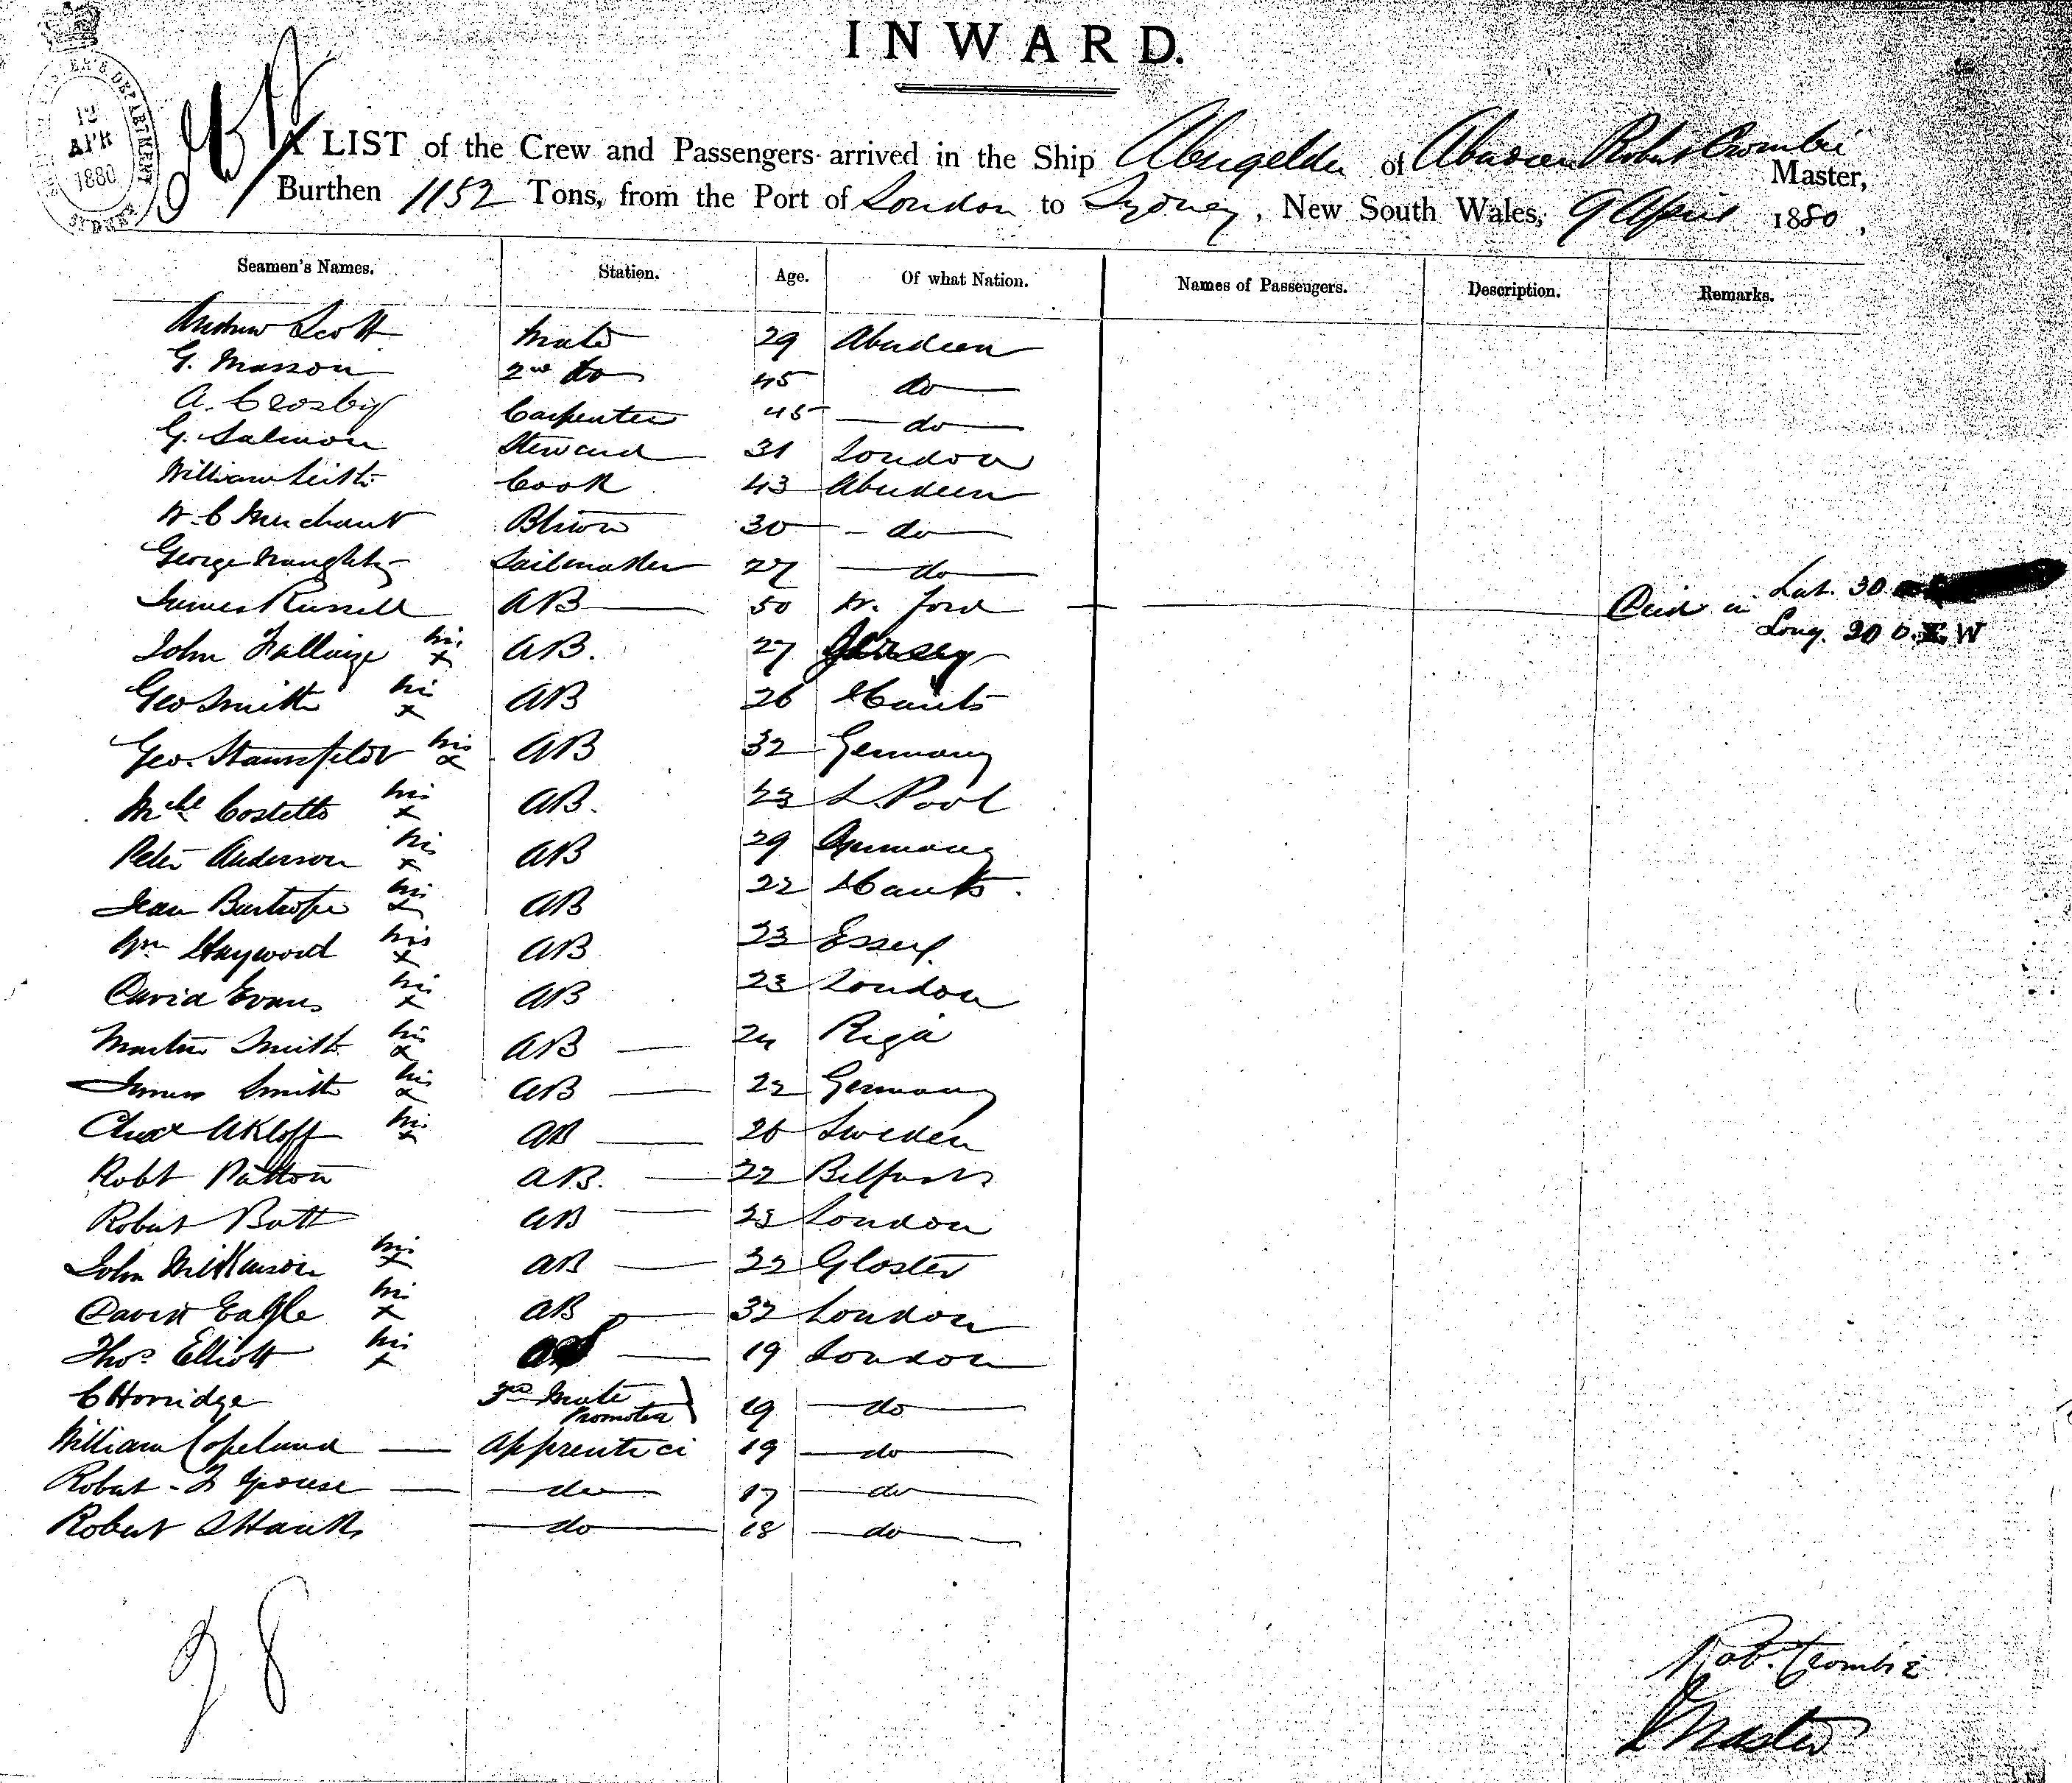 INWARD.
12
APR
1880
A LIST of the Crew and Passengers arrived in the Ship Abergeldie of Aberdeen Robert Crombie Master,
Burthen 1152 Tons, from the Port of London to Sydney, New South Wales, 9 April 1880,
Seamen's Names. Station. Age. Of what Nation. Names of Passengers. Description. Remarks.
Andrew Scott Mate 29 Aberdeen
G. Masson 2nd do 45 do
A. Crosby Carpenter 45 do
G. Salmon Steward 31 London
William Leith Cook 43 Aberdeen
W. C Merchant 30 do
George Naughty Sailmaker 27 do
James Russell AB 50 Died in Lat. 30
Long. 20 W
John Fallaize his x AB. 27 Jersey
Geo Smith his x AB 26 Hants
Geo. his x AB 32 Germany
Mchl Costello his x AB. 23 L. Pool
Peter Anderson his x AB 29 Germany
his x AB 22 Hants.
Wm Haywood his x AB 23 Essex
David Evans his x AB 23 London
Martin Smith his x AB 24 Riga
James Smith his x AB 22 Germany
Akloff his x AB 26 Sweden
Robt Patton AB. 22 Belfast
Robert Batt AB 23 London
John Wilkinson his x AB 22 Gloster
David Eagle his x AB 32 London
Thos Elliott his x 19 London
C Horridge 3rd Mate Promoted 19 do
William Copeland Apprentice 19 do
Robert F Spouse do 17 do
Robert do 18 do
28
Rob. Crombie
Master